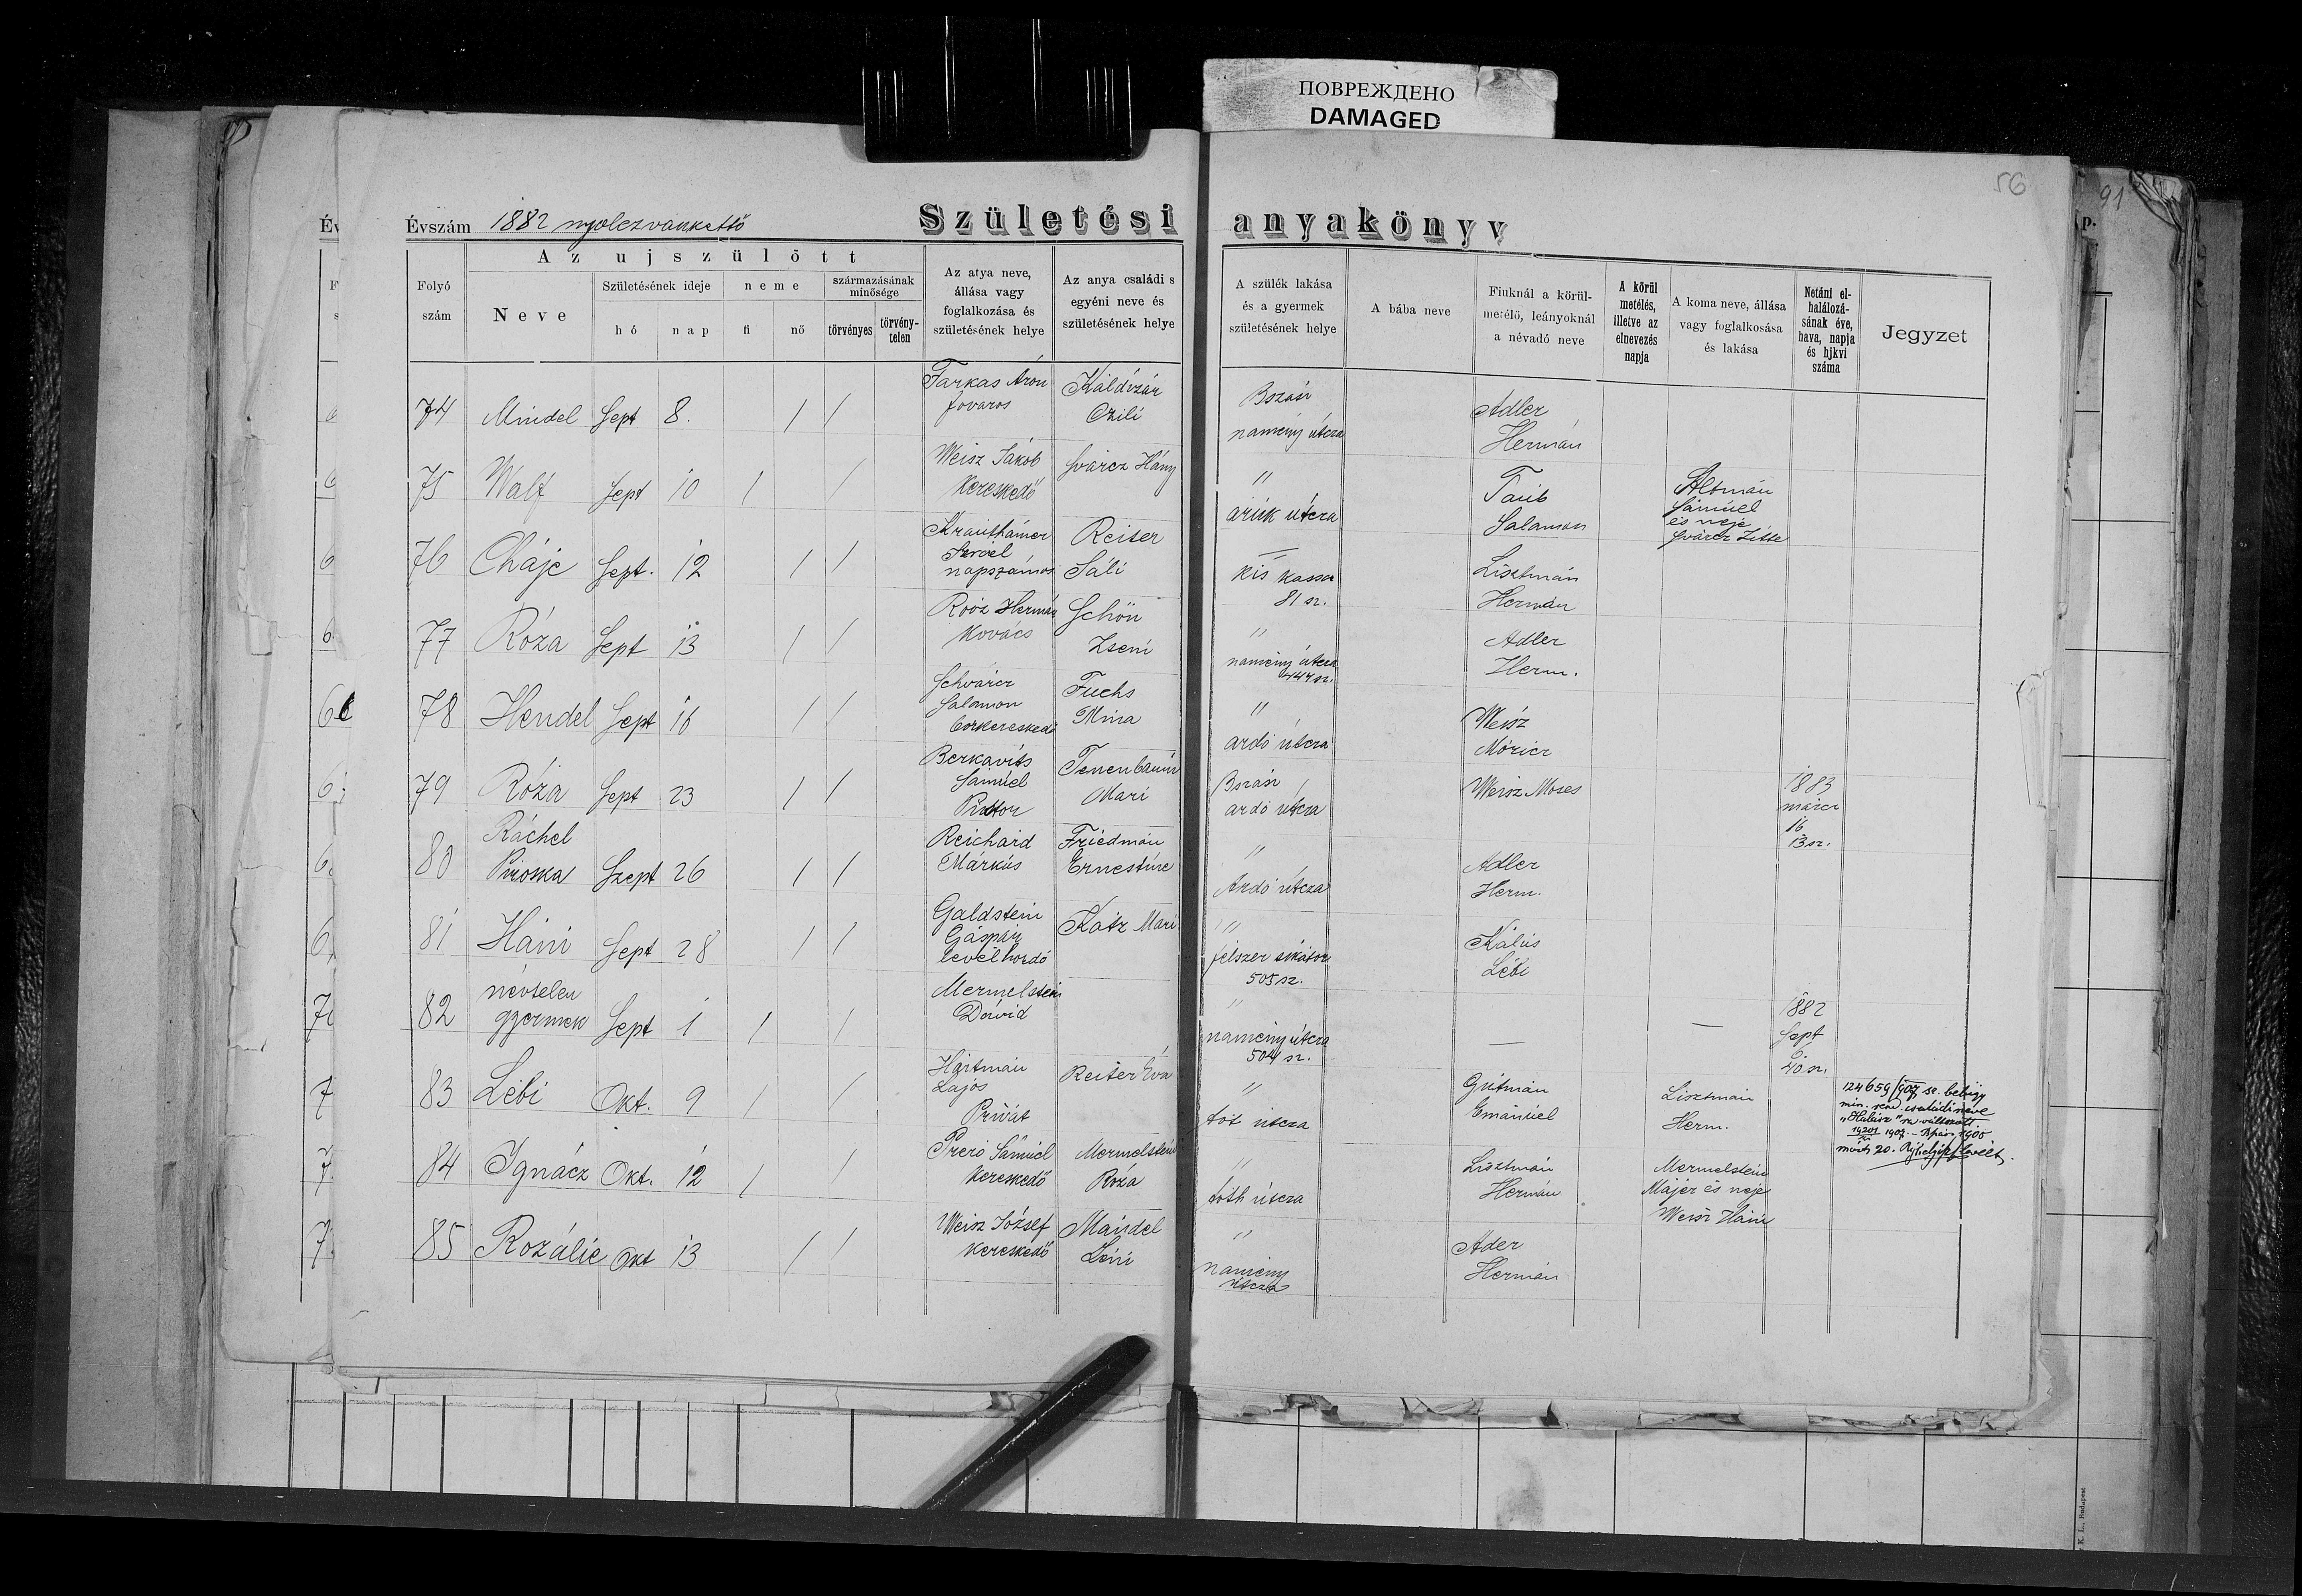 ПОВРЕЖДЕНО
DAMAGED
56
91
Évszám 1882 nyolczvankettő
Születési anyakönyv
Folyó szám
Az ujszülött
Neve
Születésének ideje
hó
nap
neme
fi
nő
származásának minősége
törvényes
törvénytelen
Az atya neve, állása vagy foglalkozása és születésének helye
Az anya családi s egyéni neve és születésének helye
A szülék lakása és a gyermek születésének helye
A bába neve
Fiuknál a körülmetélő, leányoknál a névadó neve
A körülmetélés, illetve az elnevezés napja
A koma neve, állása vagy foglalkosása és lakása
Netáni elhalálozásának éve, hava, napja és hjkvi száma
Jegyzet
74 Mindel Sept 8. / / Farkas Áron fovaros Káldizár Czili Bszász namény útcza Adler Hermán
75 Walf Sept 10 / / Weisz Jákob Kereskedő Svarcz Hány " útcza Taub Salamon Altmán Sámúel és neje Svárcz
76 Cháje Sept. 12 / / Krauthámer napszámos Reiser Sáli — Kis Kassa 81 sz. Lisztmán Hermán
77 Róza Sept 13 / / Roóz Hermán Kovács Schön Zseni " namény útcza 444 sz. Adler Herm.
78 Hendel Sept 16 / / Schvárcz Salamon borkereskedő Fuchs Mina " ardó útcza Weisz Móricz
79 Róza Sept 23 / / Berkavits Sámúel Tenenbaum Mari Bszász ardó útcza Weisz Moses 1883 március 16 13 sz.
80 Ráchel Piroska Szept 26 / / Reichard Márkús Friedmán Ernestine " Ardó útcza Adler Herm.
81 Háni Sept 28 / / Galdstein Gáspár levélhordó Katz Mari " félszer sikátor 505 sz. Kálús Lébi
82 névtelen gyermek Sept 1 / / Mermelstein Dávid " namény útcza 504 sz. — — 1882 Sept 6 40 sz.
83 Lébi Okt. 9 / / Hártmán Lajos Privát Reiter Éva " tót útcza Gútmán Emánúel Lisztmán Herm. 124659/907 sz. belügy min. családi neve
84 Ignácz Okt. 12 / / Sámúel kereskedő Mermelstein Róza " tóth útcza Lisztmán Hermán Mermelstein Májer és neje Weisz Háni
85 Rozálie Okt 13 / / Weisz József Kereskedő Mandel Léni " namény útcza Ader Hermán
K. L., Budapest